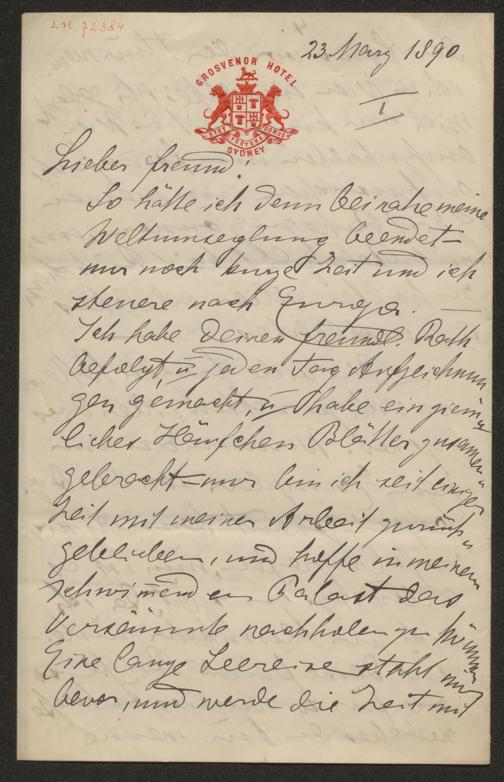 I.N. 72384
23 März 1890
GROSVENOR HOTEL
SYDNEY
I
Lieber freund!
So hätte ich denn beinahe meine
Weltumseglung beendet –
nur noch kurze Zeit und ich
steuere nach Europa. —
Ich habe Deinen freundl. Rath
befolgt, u jeden Tag Aufzeichnun
gen gemacht, u habe ein ziem
liches Häufchen Blätter zusamen
gebracht – nur bin ich seit einiger
Zeit mit meiner Arbeit zurück
geblieben, und hoffe in meinem
schwimenden Palast das
Versäumte nachholen zu können
Eine lange Seereise steht mir
bevor, und werde die Zeit mit